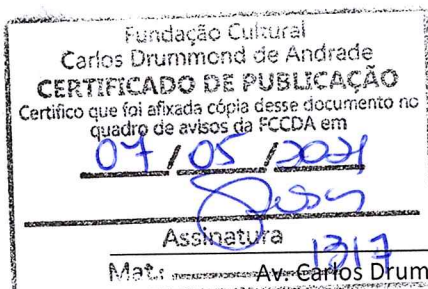 Fundação Cultural
Carlos Drummond de Andrade
CERTIFICADO DE PUBLICAÇÃO
Certifico que foi afixada cópia desse documento no
quadro de avisos da FCCDA em
07 / 05 / 2021
Assinatura
Mat.: 1317
Av. Carlos Drum